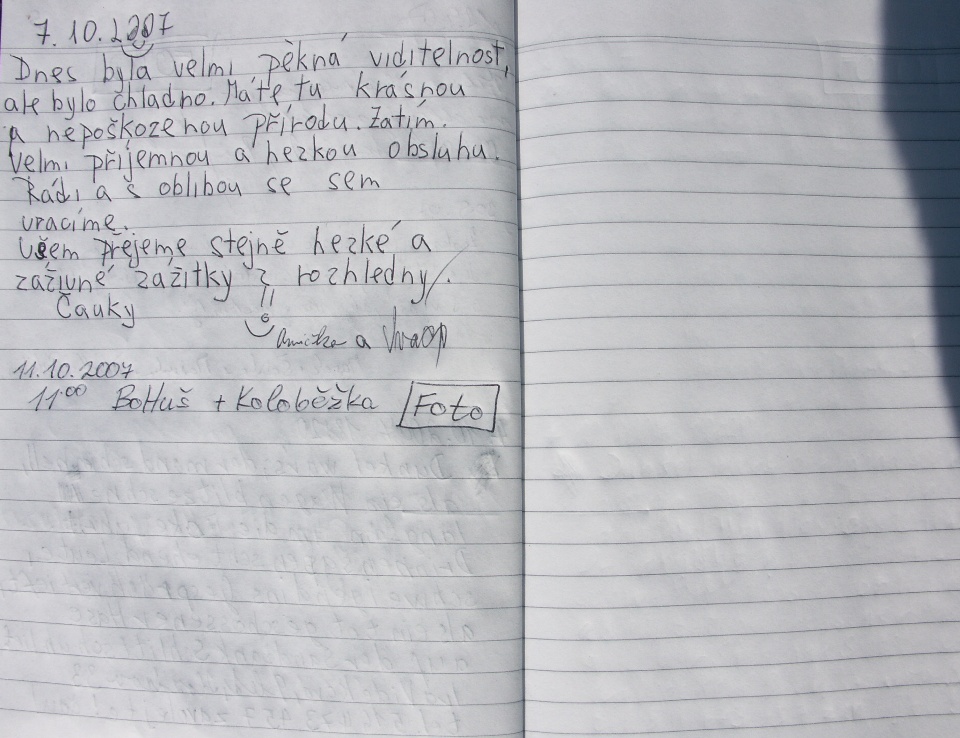 7.10.2007
Dnes byla velmi pěkná viditelnost,
ale bylo chladno. Máte tu krásnou
a nepoškozenou přírodu. Zatím.
Velmi příjemnou a hezkou obsluhu.
Rádi a s oblibou se sem
vracíme.
Všem přejeme stejně hezké a
zážívné zážitky z rozhledny.
Čauky
a
11.10.2007
11⁰⁰ BoHuš + Koloběžka Foto